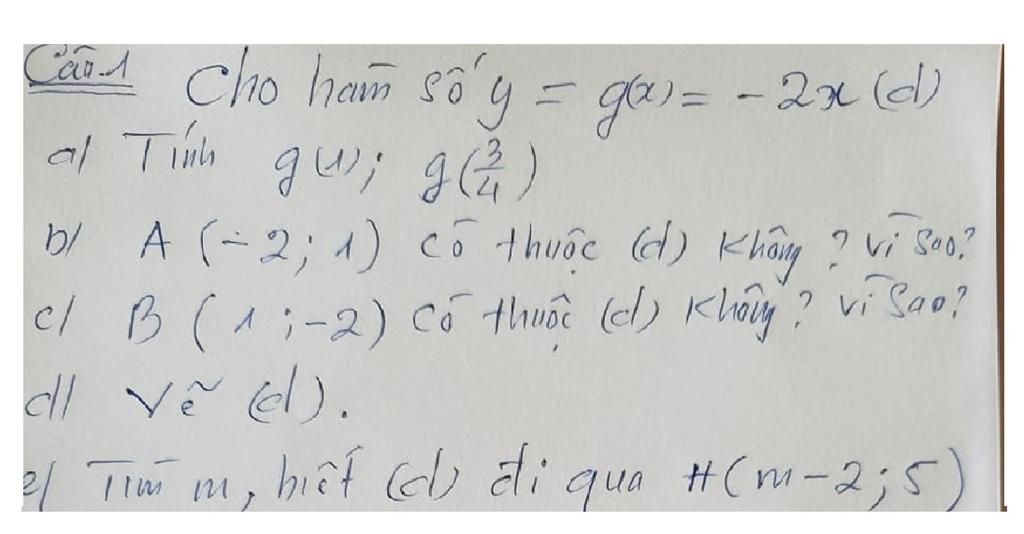 Câu.1 Cho hàm số y = g(x) = -2x (d)
a/ Tính g(1); g(3/4)
b/ A (-2; 1) có thuộc (d) không? Vì sao?
c/ B (1; -2) có thuộc (d) không? Vì sao?
d/ Vẽ (d).
e/ Tìm m, biết (d) đi qua H(m-2; 5)